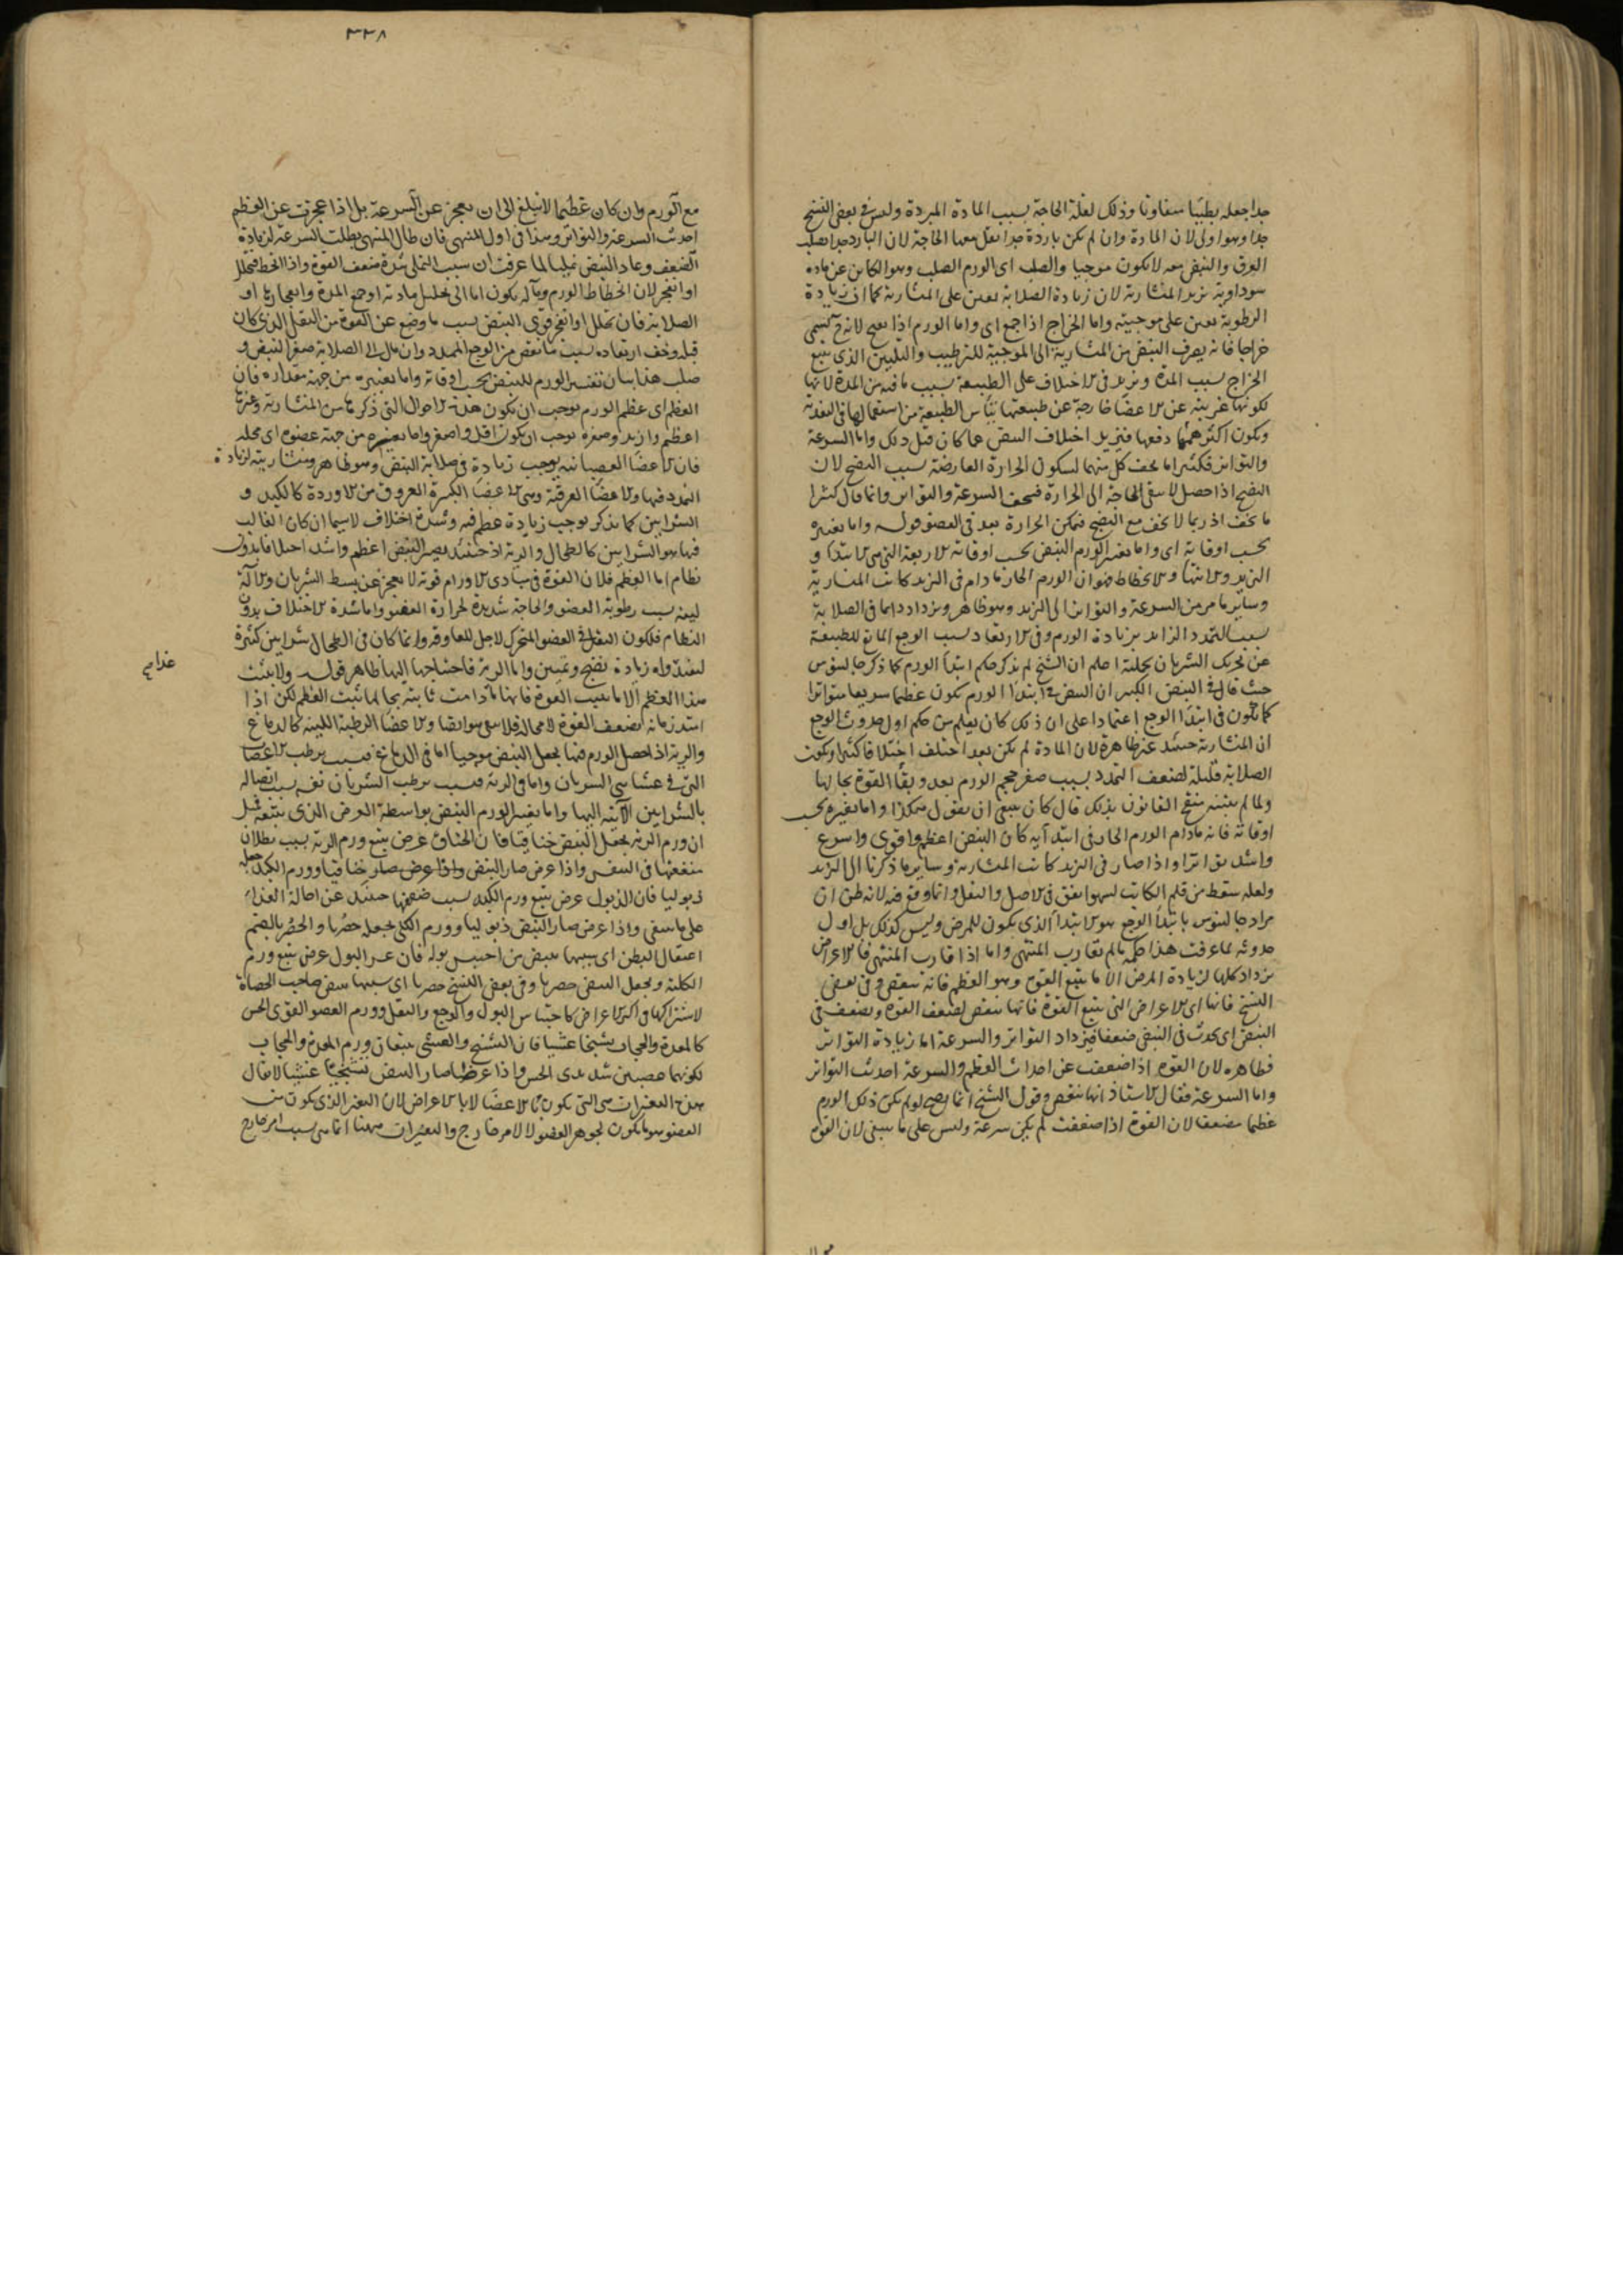 جدا جعله بطيئا متفاوتا وذلك لقلة الحاجة بسبب المادة المبردة وليس في بعض النسخ
جدا وهو اولى لان المادة وان لم يكن باردة جدا يقل معها الحاجة لان البارد جدا يصلب
العرق والنبض معه لا يكون موجيا والصلب اى الورم الصلب وهو الكاين عن مادة
سوداوية يزيد المنشارية لان زيادة الصلابة يعين على المنشارية كما ان زيادة
الرطوبة يعين على موجيته واما الخراج اذا جمع اى واما الورم اذا نضج لانه ح يسمى
خراجا فانه يصرف النبض من المنشارية الى الموجية للترطيب والتليين الذى يتبع
الخراج بسبب المدة ويزيد في الاختلاف على الطبيعة بسبب ما فيه من المدة لانها
لكونها غريبة عن الاعضا خارجة عن طبيعتها يياس الطبيعة من استعمالها في التغذية
ويكون اكثر همها دفعها فيزيد اختلاف النبض عما كان قبل ذلك واما السرعة
والتواتر فكثيرا ما يخف كل منهما لسكون الحرارة العارضة بسبب النضج لان
النضج اذا حصل لا يبقى الحاجة الى الحرارة فيخف السرعة والتواتر وانما قال كثيرا
ما يخف اذ ربما لا يخف مع النضج فتمكن الحرارة بعد في العضو قوله واما تغيره
بحسب اوقاته اى واما تغيير الورم النبض بحسب اوقاته الاربعة التى هى الابتدا و
التزيد والانتها والانحطاط فهو ان الورم الحار ما دام في التزيد كانت المنشارية
وساير ما مر من السرعة والتواتر الى التزيد وهو ظاهر ويزداد دايما في الصلابة
بسبب التمدد الزايد بزيادة الورم وفي الارتعاد بسبب الوجع المانع للطبيعة
عن تحريك الشريان بكليته اعلم ان الشيخ لم يذكر حكم ابتدأ الورم كما ذكر جالينوس
حيث قال في النبض الكبير ان النبض في ابتدا الورم يكون عظيما سريعا متواترا
كما يكون في ابتدأ الوجع اعتمادا على ان ذلك كان يعلم من حكم اول حدوث الوجع
ان المنشارية حينئذ غير ظاهرة لان المادة لم يكن بعد اختلف اختلافا كثيرا ويكون
الصلابة قليلة لضعف التمدد بسبب صغر حجم الورم بعد وبقأ القوة بحالها
ولما لم يتنبه منقح القانون بذلك قال كان ينبغى ان يقول هكذا واما تغيره بحسب
اوقاته فانه مادام الورم الحار في ابتدآيه كان النبض اعظم واقوى واسرع
واشد تواترا واذا صار في التزيد كانت المنشارية وساير ما ذكرنا الى التزيد
ولعله سقط من قلم الكاتب لسهو اتفق في الاصل والنقل وانما وقع فيه لانه ظن ان
مراد جالينوس بابتدأ الوجع هو الابتدأ الذى يكون للمرض وليس كذلك بل اول
حدوثه لما عرفت هذا حكمه ما لم يقارب المنتهى واما اذا قارب المنتهى فالاعراض
يزداد كلها لزيادة المرض الا ما يتبع القوة وهو العظم فانه ينقص وفي بعض
النسخ فانها اى الاعراض التى يتبع القوة فانها ينقص لضعف القوة ويضعف في
النبض اى يحدث في النبض ضعفا فيزداد التواتر والسرعة اما زيادة التواتر
فظاهره لان القوة اذا ضعفت عن احداث العظم والسرعة احدثت التواتر
واما السرعة فقال الاستاذ انها ينقص وقول الشيخ انما يصح لو لم يكن ذلك الورم
عظيما مضعفا لان القوة اذا ضعفت لم يكن سرعة وليس على ما ينبغى لان القوة
٣٣٨
مع الورم وان كان عظيما لا يبلغ الى ان يعجز عن السرعة بل اذا عجزت عن العظم
احدثت السرعة والتواتر وهذا في اول المنتهى فان طال المنتهى بطلت السرعة لزيادة
الضعف وعاد النبض نمليا لما عرفت ان سبب النملى شدة ضعف القوة واذا انحط فتحلل
او انفجر لان انحطاط الورم ومآله يكون اما الى تحليل مادته او جمع المدة وانفجارها او
الصلابة فان تحلل او انفجر قوى النبض بسبب ما وضع عن القوة من الثقل الذى كان
قبله وخف ارتعاده بسبب ما نقص من الوجع الممدد وان مال الى الصلابة صغر النبض و
صلب هذا بيان تغيير الورم للنبض بحسب اوقاته واما تغييره من جهة مقداره فان
العظم اى عظم الورم يوجب ان يكون هذه الاحوال التى ذكرناها من المنشارية وغيرها
اعظم وازيد وصغره يوجب ان يكون اقل واصغر واما تغييره من جهة عضوه اى محله
فان الاعضا العصبانية يوجب زيادة في صلابة النبض وهو ظاهر ومنشاريته لزيادة
التمدد فيها والاعضا العرقية وهى الاعضا الكثيرة العروق من الاوردة كالكبد و
الشرايين كما يذكر يوجب زيادة عظم فيه وشدة اختلاف لاسيما ان كان الغالب
فيها هو الشرايين كالطحال والرية اذ حينئذ يصير النبض اعظم واشد اختلافا بدون
نظام اما العظم فلان القوة في مبادى الاورام قوية لا يعجز عن بسط الشريان والآلة
لينة بسبب رطوبة العضو والحاجة شديدة لحرارة العفو واما شدة الاختلاف بدون
النظام فلكون الثقل في العضو المتحرك لاجل المعاوقة وانما كان في الطحال شرايين كثيرة
لينفذ دواه زيادة نضج وتعين واما الرية فاحتياجها اليها ظاهر قوله ولا يثبت
غذايه
هذا العظم الا ما يثبت القوة فانها ما دامت ثابتة بحالها يثبت العظم لكن اذا
امتد زمانه يضعف القوة لا محالة فلا يبقى هو ايضا والاعضا الرطبة اللينة كالدماغ
والرية اذا حصل الورم فيها يجعل النبض موجيا اما في الدماغ فبسبب ترطيب الاعصاب
التى في غشأ الشريان واما في الرية فبسبب ترطيب الشريان نفسه بسبب اتصاله
بالشرايين الآتية اليها واما تغيير الورم النبض بواسطة العرض الذى يتبعه فمثل
ان ورم الرية يجعل النبض خناقيا فان الخناق عرض يتبع ورم الرية بسبب بطلان
منفعتها في النفس واذا عرض صار النبض خناقيا وورم الكبد يجعله
ذبوليا فان الذبول عرض يتبع ورم الكبد بسبب ضعفها حينئذ عن احالة الغذاء
على ما ينبغى واذا عرض صار النبض ذبوليا وورم الكلى يجعله حصريا والحصر بالضم
اعتقال البطن اى شبيها بنبض من احتبس بوله فان عسر البول عرض يتبع ورم
الكلية ويجعل النبض حصريا وفي بعض النسخ حصريا اى شبيها بنبض صاحب الحصاة
لاشتراكها في اكثر الاعراض كاحتباس البول والوجع والثقل وورم العضو القوى الحس
كالمعدة والحجاب تشنجيا غشييا فان التشنج والغشى يتبعان ورم المعدة والحجاب
لكونهما عصبيين شديدى الحس واذا عرضا صار النبض تشنجيا غشييا لا يقال
هذه التغيرات هى التى يكون بالاعضا لا بالاعراض لان التغير الذى يكون من
العضو هو ما يكون لجوهر العضو لا لامر خارج والتغيرات هيهنا انما هى بسبب امر خارج